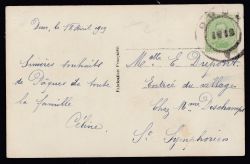 Dour, le 18 Avril 1919
Sincères souhaits
de Pâques de toute
la famille
Céline
Fabrication Française
Melle E. Dupont
Entrée du village
Chez Mme Deschamps
St Symphorien